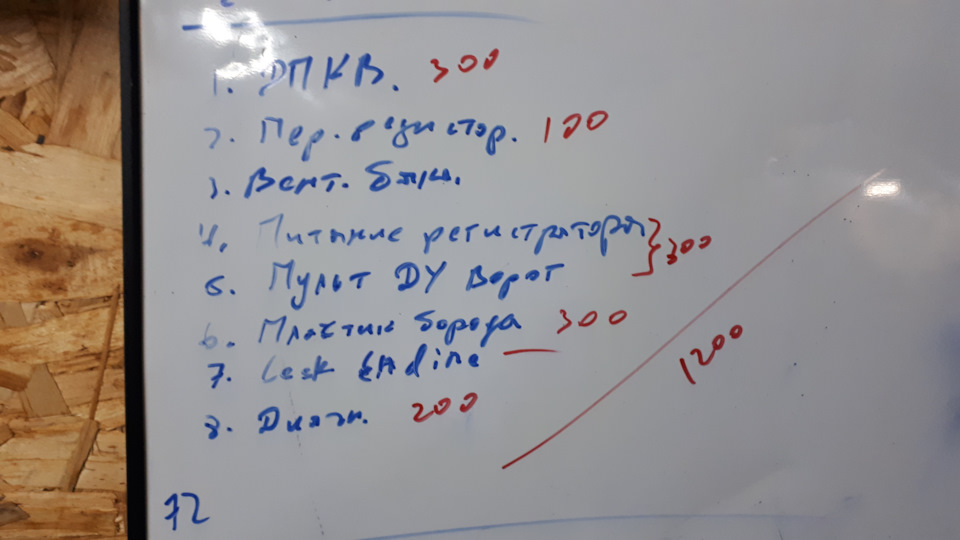 1. ДПКВ. 300
2. Пер. резистор. 100
3. Вент. бт.
4. Питание регистратора } 300
5. Пульт DУ Ворот
6. Пластик борода 300
7. Leak Engine —
8. Диагн. 200
1200
72